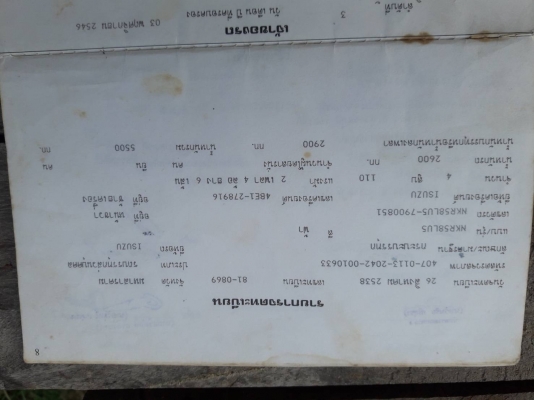 8
รายการจดทะเบียน
วันจดทะเบียน 26 สิงหาคม 2538 เลขทะเบียน 81-0869 จังหวัด มหาสารคาม
รหัสตรวจสภาพ 407-0113-2042-0010633 ประเภท รถบรรทุกส่วนบุคคล
ลักษณะ/มาตรฐาน กระบะบรรทุก ยี่ห้อรถ ISUZU
แบบ/รุ่น NKR58LU5 สี ฟ้า
เลขตัวรถ NKR58LU5-7900851 อยู่ที่ หน้าขวา
ยี่ห้อเครื่องยนต์ ISUZU เลขเครื่องยนต์ 4BE1-278916 อยู่ที่ ซ้ายเครื่อง
จำนวน 4 สูบ 110 แรงม้า 2 เพลา 4 ล้อ ยาง 6 เส้น
น้ำหนักรถ 2600 กก. จำนวนผู้โดยสารนั่ง คน ยืน คน
น้ำหนักบรรทุกหรือน้ำหนักลงเพลา 2900 กก. น้ำหนักรวม 5500 กก.
เจ้าของรถ
ลำดับที่ 3 วัน เดือน ปี ที่ครอบครอง 03 พฤศจิกายน 2546